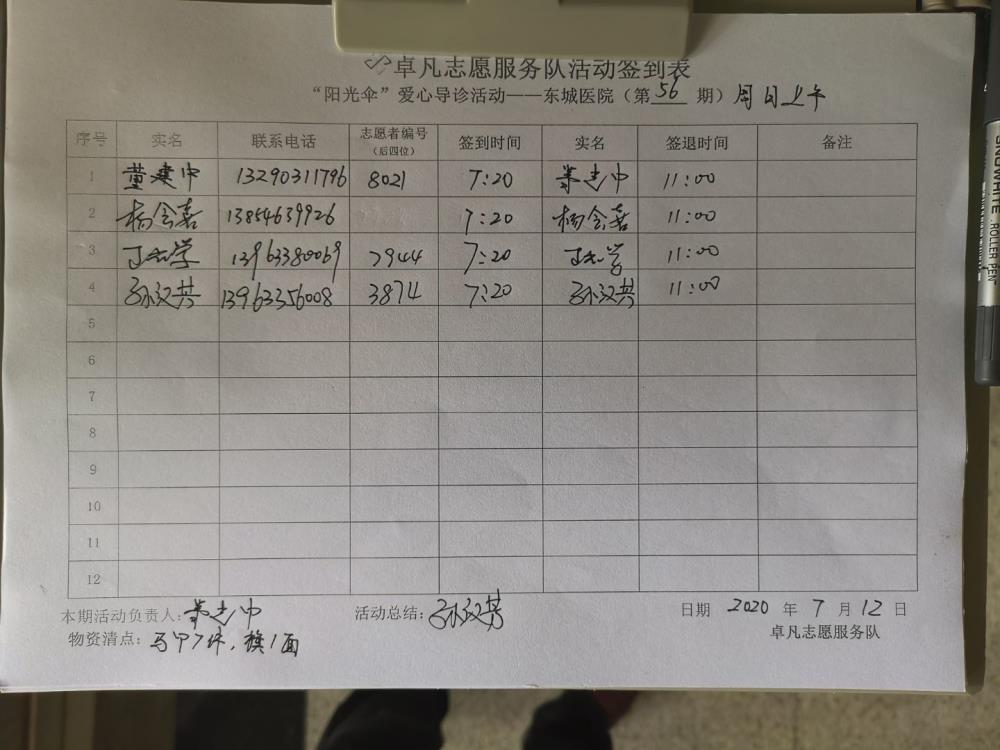 卓凡志愿服务队活动签到表
“阳光伞”爱心导诊活动——东城医院（第 56 期）周日上午
序号 实名 联系电话 志愿者编号（后四位） 签到时间 实名 签退时间 备注
1 董建中 13290311796 8021 7:20 董建中 11:00
2 杨会嘉 13854639926 7:20 杨会嘉 11:00
3 丁志学 13963380069 7944 7:20 丁志学 11:00
4 孙汉芳 13963356008 3874 7:20 孙汉芳 11:00
5
6
7
8
9
10
11
12
本期活动负责人：董建中 活动总结：孙汉芳 日期 2020 年 7 月 12 日
物资清点：马甲7件，旗1面 卓凡志愿服务队
SNOWWHITE ROLLER PEN